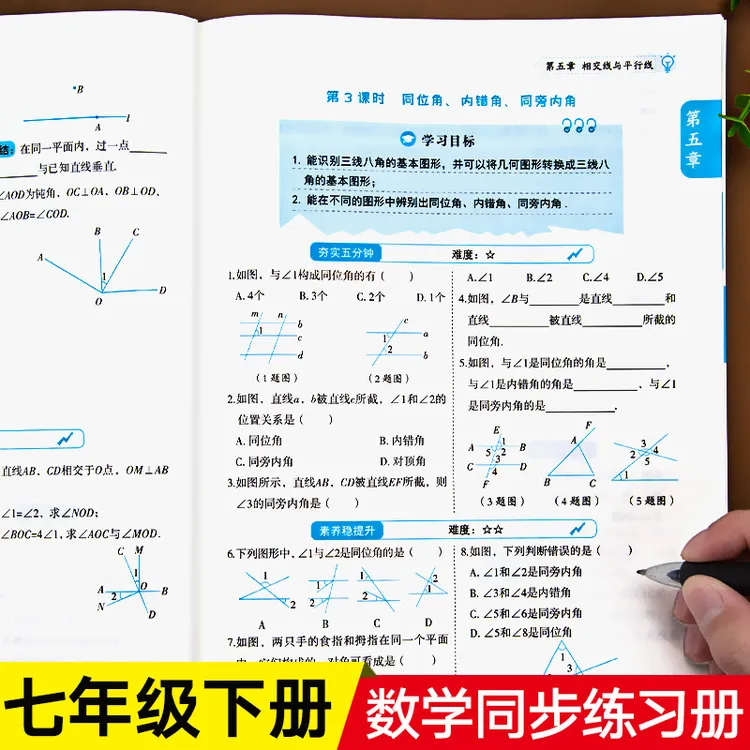 B
A
l
结：在同一平面内，过一点
与已知直线垂直.
∠AOD为钝角，OC⊥OA，OB⊥OD，
∠AOB=∠COD.
A B C
1
O D
直线AB、CD相交于O点，OM⊥AB
∠1=∠2，求∠NOD；
∠BOC=4∠1，求∠AOC与∠MOD.
C M
1
A O B
2
N D
第五章 相交线与平行线
第五章
第3课时 同位角、内错角、同旁内角
学习目标
1. 能识别三线八角的基本图形，并可以将几何图形转换成三线八
角的基本图形；
2. 能在不同的图形中辨别出同位角、内错角、同旁内角.
夯实五分钟 难度：☆
1.如图，与∠1构成同位角的有（ ）
A. 4个 B. 3个 C. 2个 D. 1个
m n
b
1
c
d
（1题图）
c
a
1
2
b
（2题图）
2.如图，直线a，b被直线c所截，∠1和∠2的
位置关系是（ ）
A. 同位角 B. 内错角
C. 同旁内角 D. 对顶角
3.如图所示，直线AB、CD被直线EF所截，则
∠3的同旁内角是（ ）
A.∠1 B.∠2 C.∠4 D.∠5
4.如图，∠B与______是直线______和
直线______被直线______所截的
同位角.
5.如图，与∠1是同位角的角是______，
与∠1是内错角的角是______，与∠1
是同旁内角的是______.
E
A 1 B
5 2
3
C 4 D
F
（3题图）
F
A
B C
（4题图）
3
2 4
5
1
（5题图）
素养稳提升 难度：☆☆
6.下列图形中，∠1与∠2是同位角的是（ ）
1 2
1 2
1 2
1 2
A B C D
7.如图，两只手的食指和拇指在同一个平面
8.如图，下列判断错误的是（ ）
A. ∠1和∠2是同旁内角
B. ∠3和∠4是内错角
C. ∠5和∠6是同旁内角
D. ∠5和∠8是同位角
1
3
七年级下册
数学同步练习册